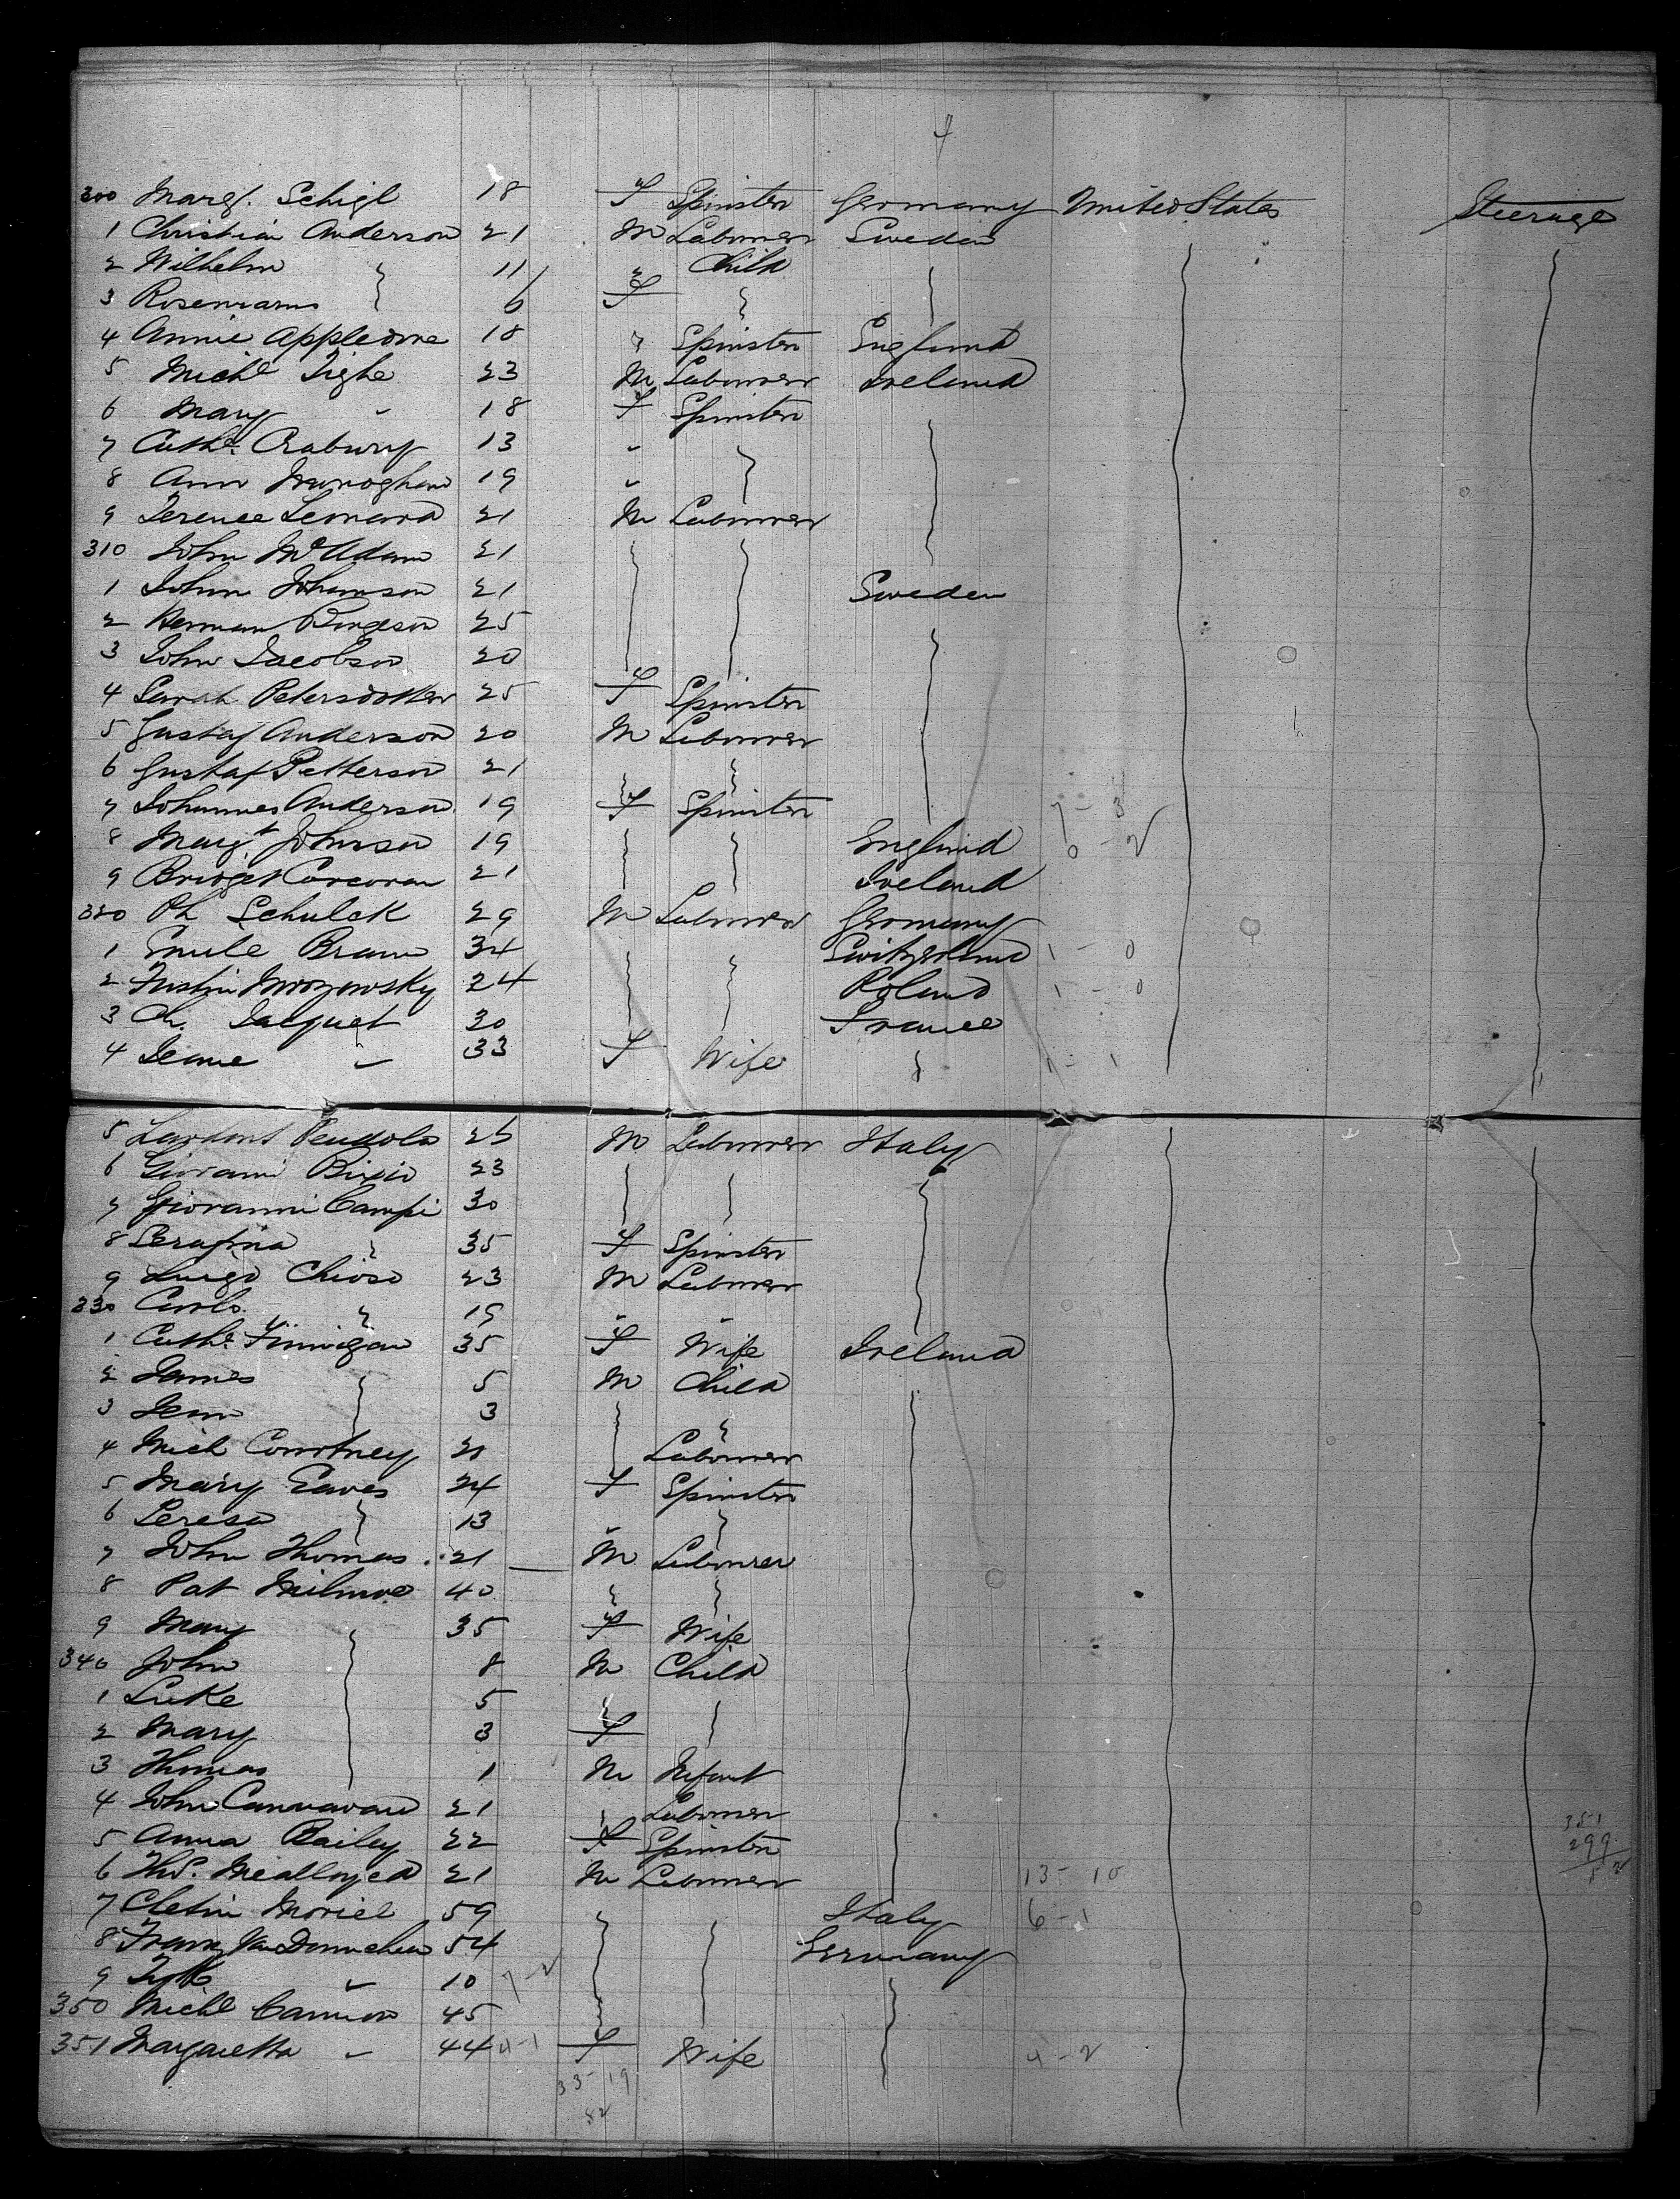 4
300 Margt. Schigl 18 F Spinster Germany United States Steerage
1 Christian Anderson 21 M Labourer Sweden
2 Wilhelm 11 " Child
3 6 F
4 Annie Appledore 18 " Spinster England
5 Michl Tighe 23 M Labourer Ireland
6 Mary " 18 F Spinster
7 Cathe. 13 "
8 Ann 19 "
9 Terence Leonard 21 M Labourer
310 John McAdam 21
1 John Johanson 21 Sweden
2 Herman 25
3 John Jacobson 20
4 Sarah Petersdotter 25 F Spinster
5 Gustaf Anderson 20 M Labourer
6 Gustaf Petterson 21
7 Johannes Anderson 19 F Spinster 7 - 3
8 Margt Johnson 19 England 0 - 2
9 Bridget Corcoran 21 Ireland
320 Ph Schulek 29 M Labourer Germany
1 Emile Braun 34 Switzerland 1 - 0
2 24 Poland 1 - 0
3 Ch. Jacquet 30 France
4 Jeane " 33 F Wife 1 - 1
5 26 M Labourer Italy
6 Giovanni Bixio 23
7 Giovanni Campi 30
8 Serafina " 35 F Spinster
9 Luigo Chioso 23 M Labourer
330 Carlo " 19 " "
1 Cathe Finnigan 35 F Wife Ireland
2 James 5 M Child
3 3
4 Mich Courtney 21 Labourer
5 Mary Eaves 24 F Spinster
6 Teresa 13
7 John Thomas 21 M Labourer
8 Pat Milmoe 40
9 Mary 35 F Wife
340 John 8 M Child
1 Luke 5
2 Mary 3 F
3 Thomas 1 M Infant
4 John Cannavan 21 " Labourer
5 Anna Bailey 22 F Spinster
351
299
52
6 21 M Labourer 13 - 10
7 Moriel 59 Italy 6 - 1
8 Franz 54 Germany
9 " 10 7 - 2
350 Michl Cannon 45
351 Margaretta " 44 4 - 1 F Wife 4 - 2
33 - 19
52